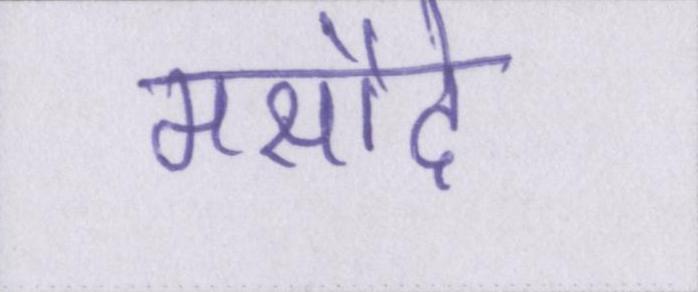 मसौदे